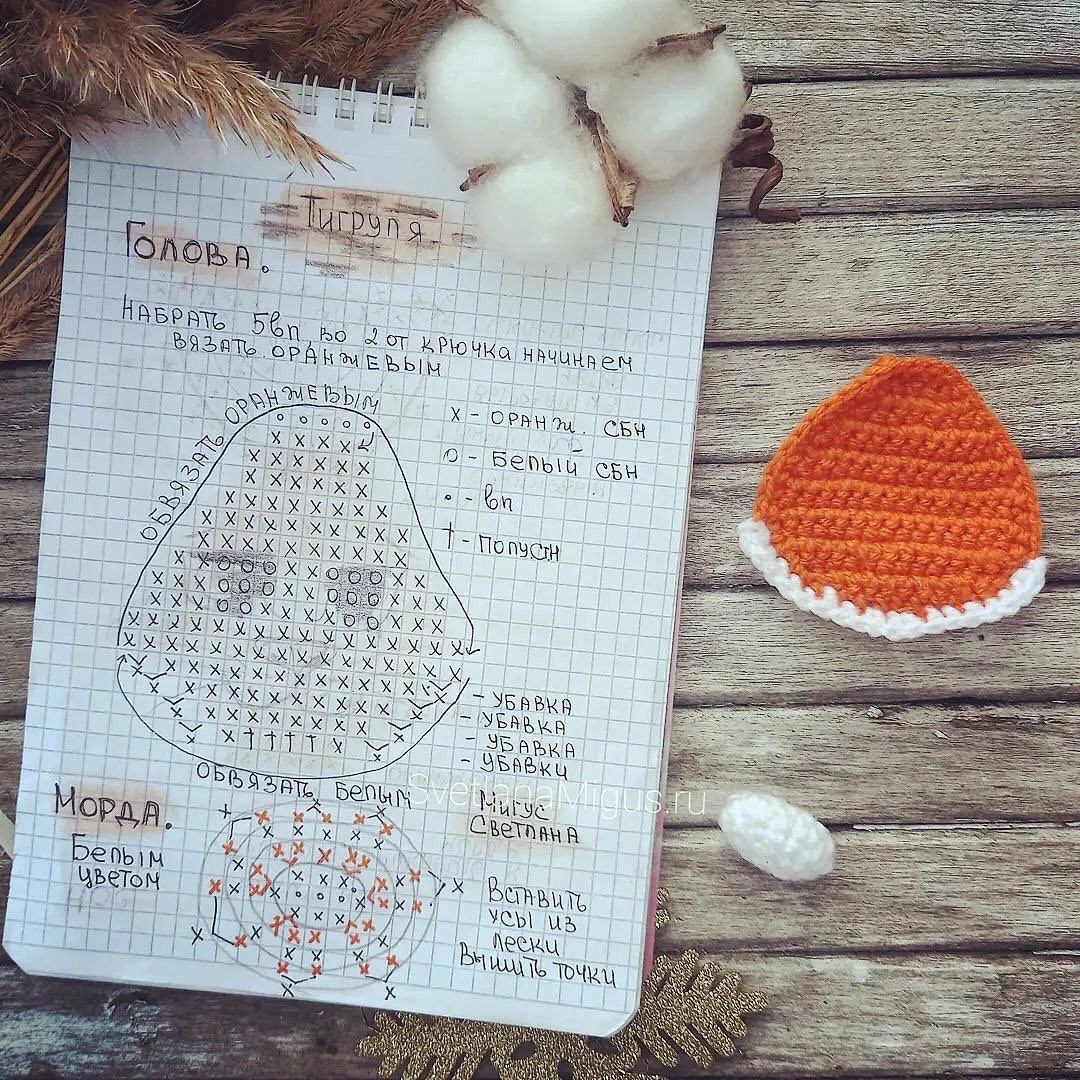 Тигруля.
Голова.
НАБРАТЬ 5вп, во 2 от крючка начинаем
вязать оранжевым
обвязать оранжевым
x - оранж. сбн
o - белый сбн
• - вп
† - Полустн
- убавка
- убавка
- убавка
- убавки
обвязать белым
SvetlanaMigus.ru
Мигус
Светлана
Морда.
Белым
цветом
Вставить
усы из
лески
Вышить точки